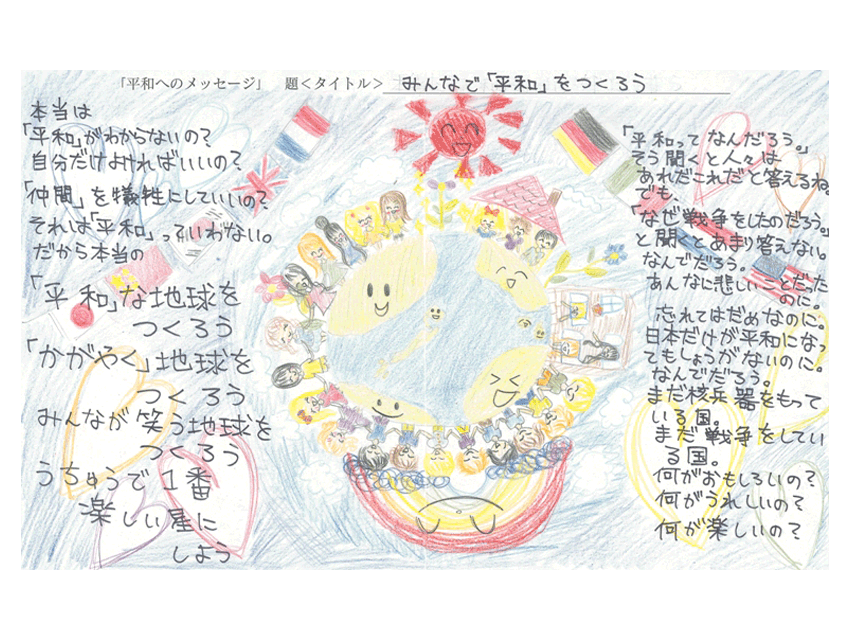 「平和へのメッセージ」　題＜タイトル＞　みんなで「平和」をつくろう
「平和ってなんだろう。」
そう聞くと人々は
あれだこれだと答えるね。
でも、
「なぜ戦争をしたのだろう。」
と聞くとあまり答えない。
なんでだろう。
あんなに悲しいことだった
のに。
忘れてはだめなのに。
日本だけが平和になっ
てもしょうがないのに。
なんでだろう。
まだ核兵器をもって
いる国。
まだ戦争をしてい
る国。
何がおもしろいの？
何がうれしいの？
何が楽しいの？
本当は
「平和」がわからないの？
自分だけよければいいの？
「仲間」を犠牲にしていいの？
それは「平和」っていわない。
だから本当の
「平和」な地球を
つくろう
「かがやく」地球を
つくろう
みんなが笑う地球を
つくろう
うちゅうで1番
楽しい星に
しよう